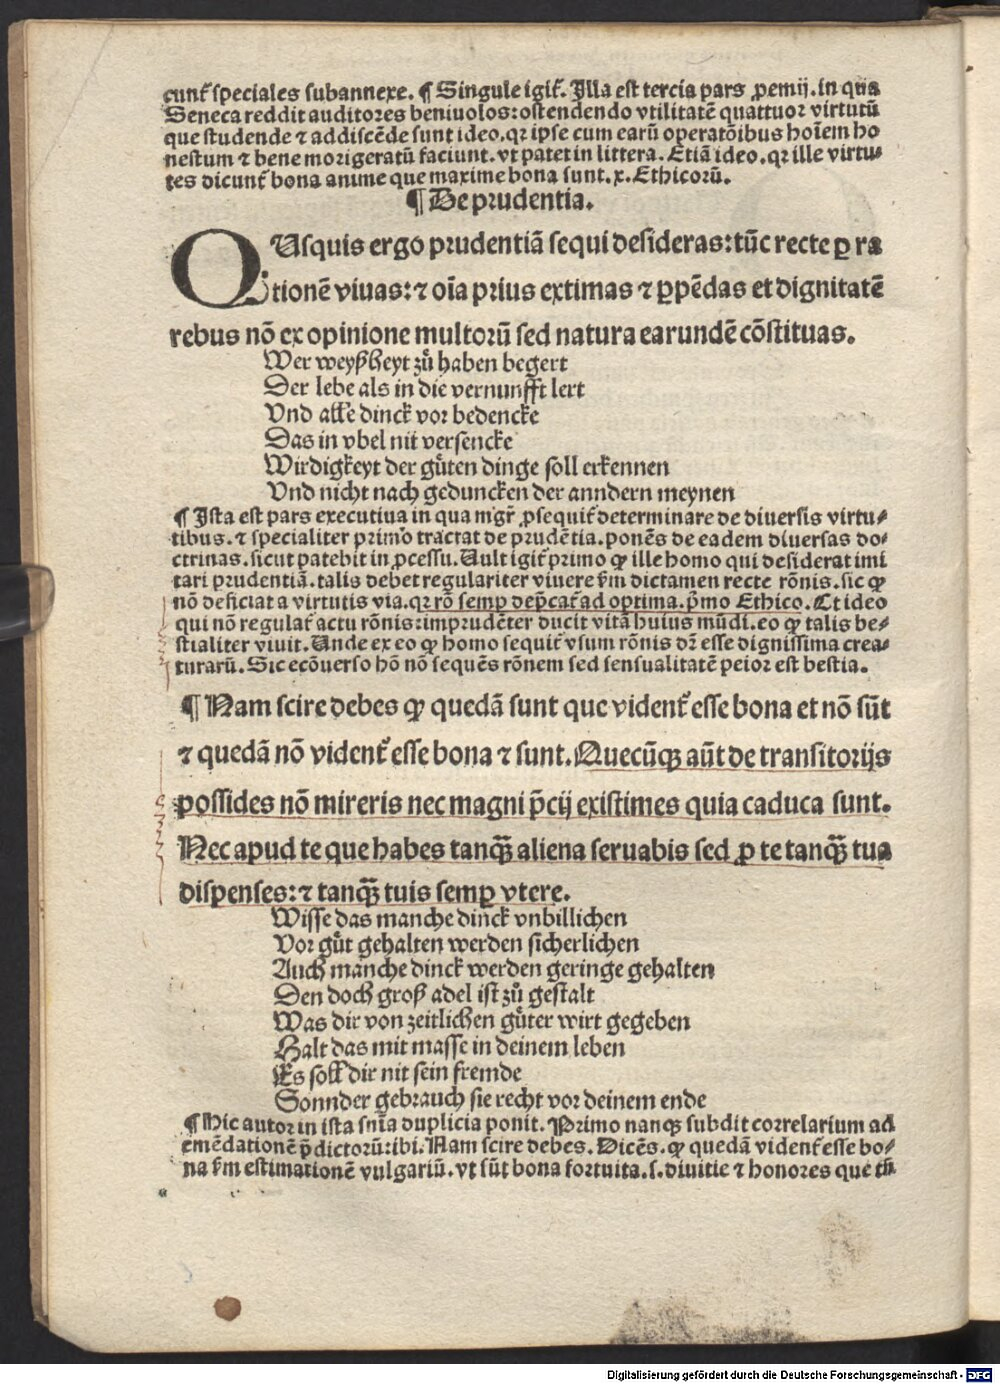 cunt᷒ speciales subannexe. ¶ Singule igit᷒. Illa est tercia pars ꝓemij. in qua
Seneca reddit auditores beniuolos: ostendendo vtilitatē quattuor virtutū
que studende ⁊ addiscēde sunt ideo. qꝛ ipse cum earū operatōibus hoīem ho
nestum ⁊ bene morigeratū faciunt. vt patet in littera. Etiā ideo. qꝛ ille virtu⸗
tes dicunt᷒ bona anime que maxime bona sunt. x. Ethicorū.
¶ De prudentia.
QUisquis ergo prudentiā sequi desideras: tūc recte ꝑ ra
tionē viuas: ⁊ oīa prius extimas ⁊ ꝑpēdas et dignitatē
rebus nō ex opinione multorū sed natura earundē cōstituas.
Wer weyßheyt zuͦ haben begert
Der lebe als in die vernunfft lert
Vnd alle dinck vor bedencke
Das in vbel nit versencke
Wirdigkeyt der guͦten dinge soll erkennen
Vnd nicht nach geduncken der anndern meynen
¶ Ista est pars executiua in qua mgr̄ ꝓsequit᷒ determinare de diuersis virtu⸗
tibus. ⁊ specialiter primo tractat de prudētia. ponēs de eadem diuersas do⸗
ctrinas. sicut patebit in ꝓcessu. Uult igit᷒ primo ꝙ ille homo qui desiderat imi
tari prudentiā. talis debet regulariter viuere ẜm dictamen recte rōnis. sic ꝙ
nō deficiat a virtutis via. qꝛ rō semꝑ dep̄cat᷒ ad optima. p̄mo Ethico. Et ideo
qui nō regulat᷒ actu rōnis: imprudēter ducit vitā huius mūdi. eo ꝙ talis be⸗
stialiter viuit. Unde ex eo ꝙ homo sequit᷒ vsum rōnis dꝛ̄ esse dignissima crea⸗
turarū. Sic ecōuerso hō nō sequēs rōnem sed sensualitatē peior est bestia.
¶ Nam scire debes ꝙ quedā sunt que vident᷒ esse bona et nō sūt
⁊ quedā nō vident᷒ esse bona ⁊ sunt. Quecūqꝫ aūt de transitorijs
possides nō mireris nec magni p̄cij existimes quia caduca sunt.
Nec apud te que habes tanqꝫ̄ aliena seruabis sed ꝓ te tanqꝫ̄ tua
dispenses: ⁊ tanqꝫ̄ tuis semꝑ vtere.
Wisse das manche dinck vnbillichen
Vor guͦt gehalten werden sicherlichen
Auch manche dinck werden geringe gehalten
Den doch groß adel ist zuͦ gestalt
Was dir von zeitlichen guͦter wirt gegeben
Halt das mit masse in deinem leben
Es soll dir nit sein fremde
Sonnder gebrauch sie recht vor deinem ende
¶ Hic autor in ista sn̄ia duplicia ponit. Primo nanqꝫ subdit correlarium ad
emēdationē p̄dictorū: ibi. Nam scire debes. Dicēs. ꝙ quedā vident᷒ esse bo⸗
na ẜm estimationē vulgariū. vt sūt bona fortuita. s. diuitie ⁊ honores que tn̄
Digitalisierung gefördert durch die Deutsche Forschungsgemeinschaft - DFG